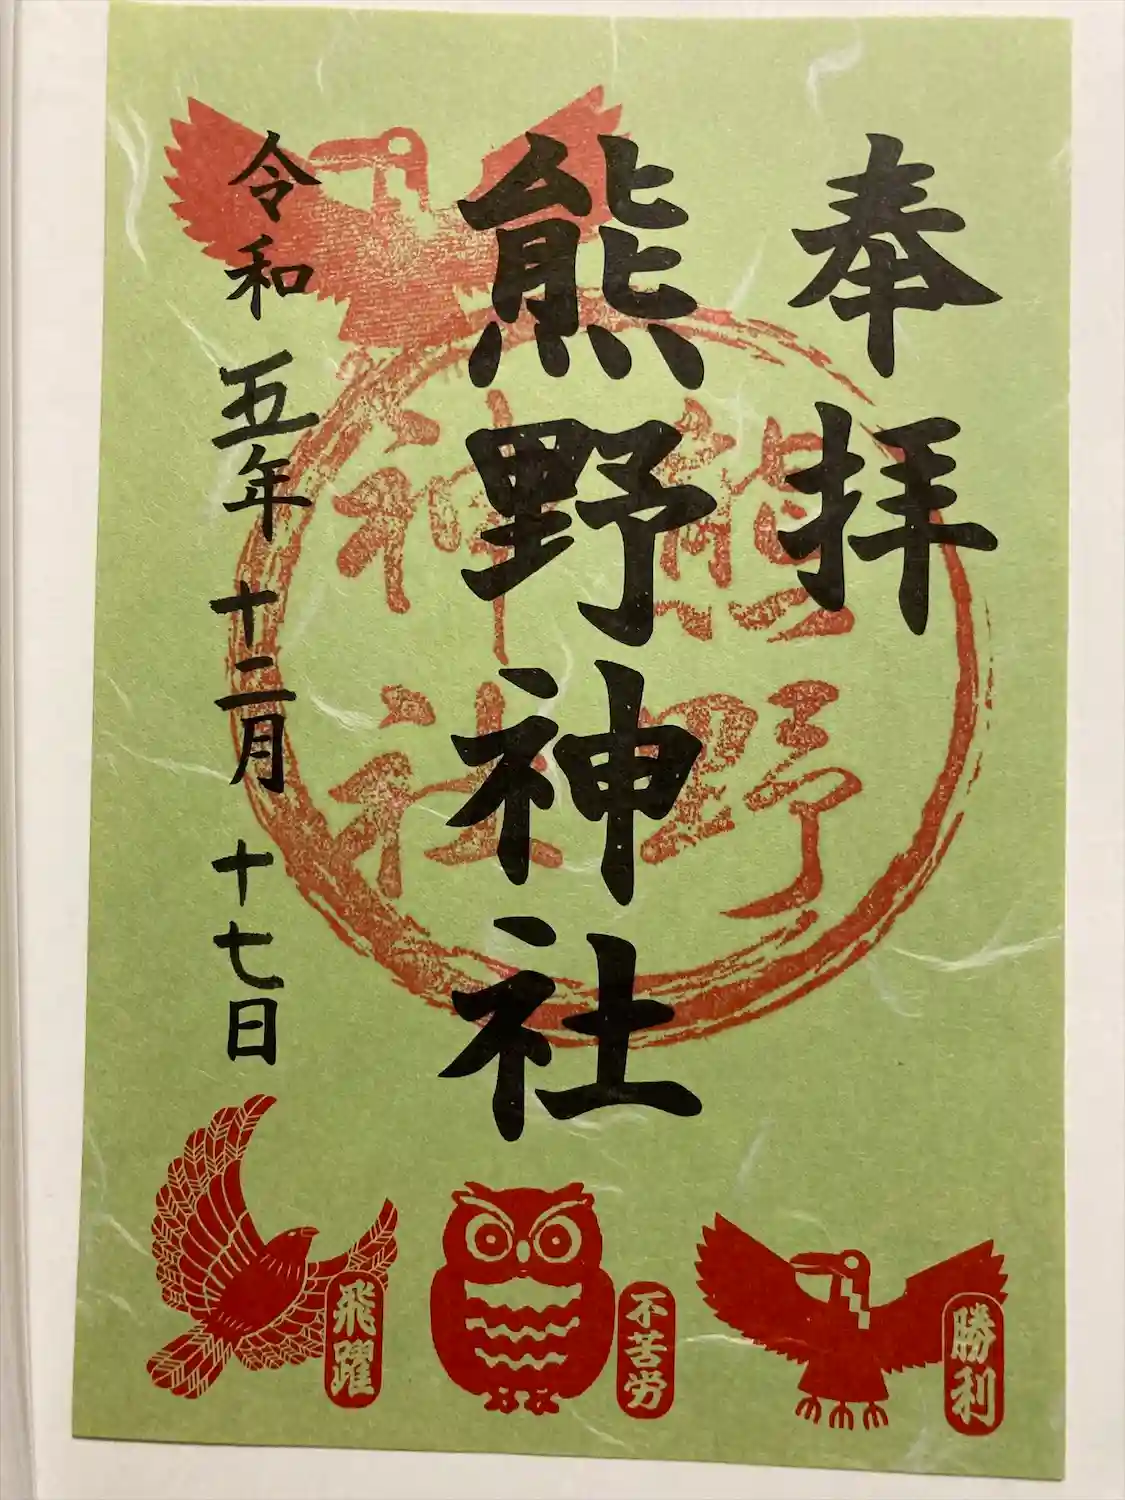 奉拝
熊野神社
令和五年十二月十七日
熊野
神社
勝利
不苦労
飛躍